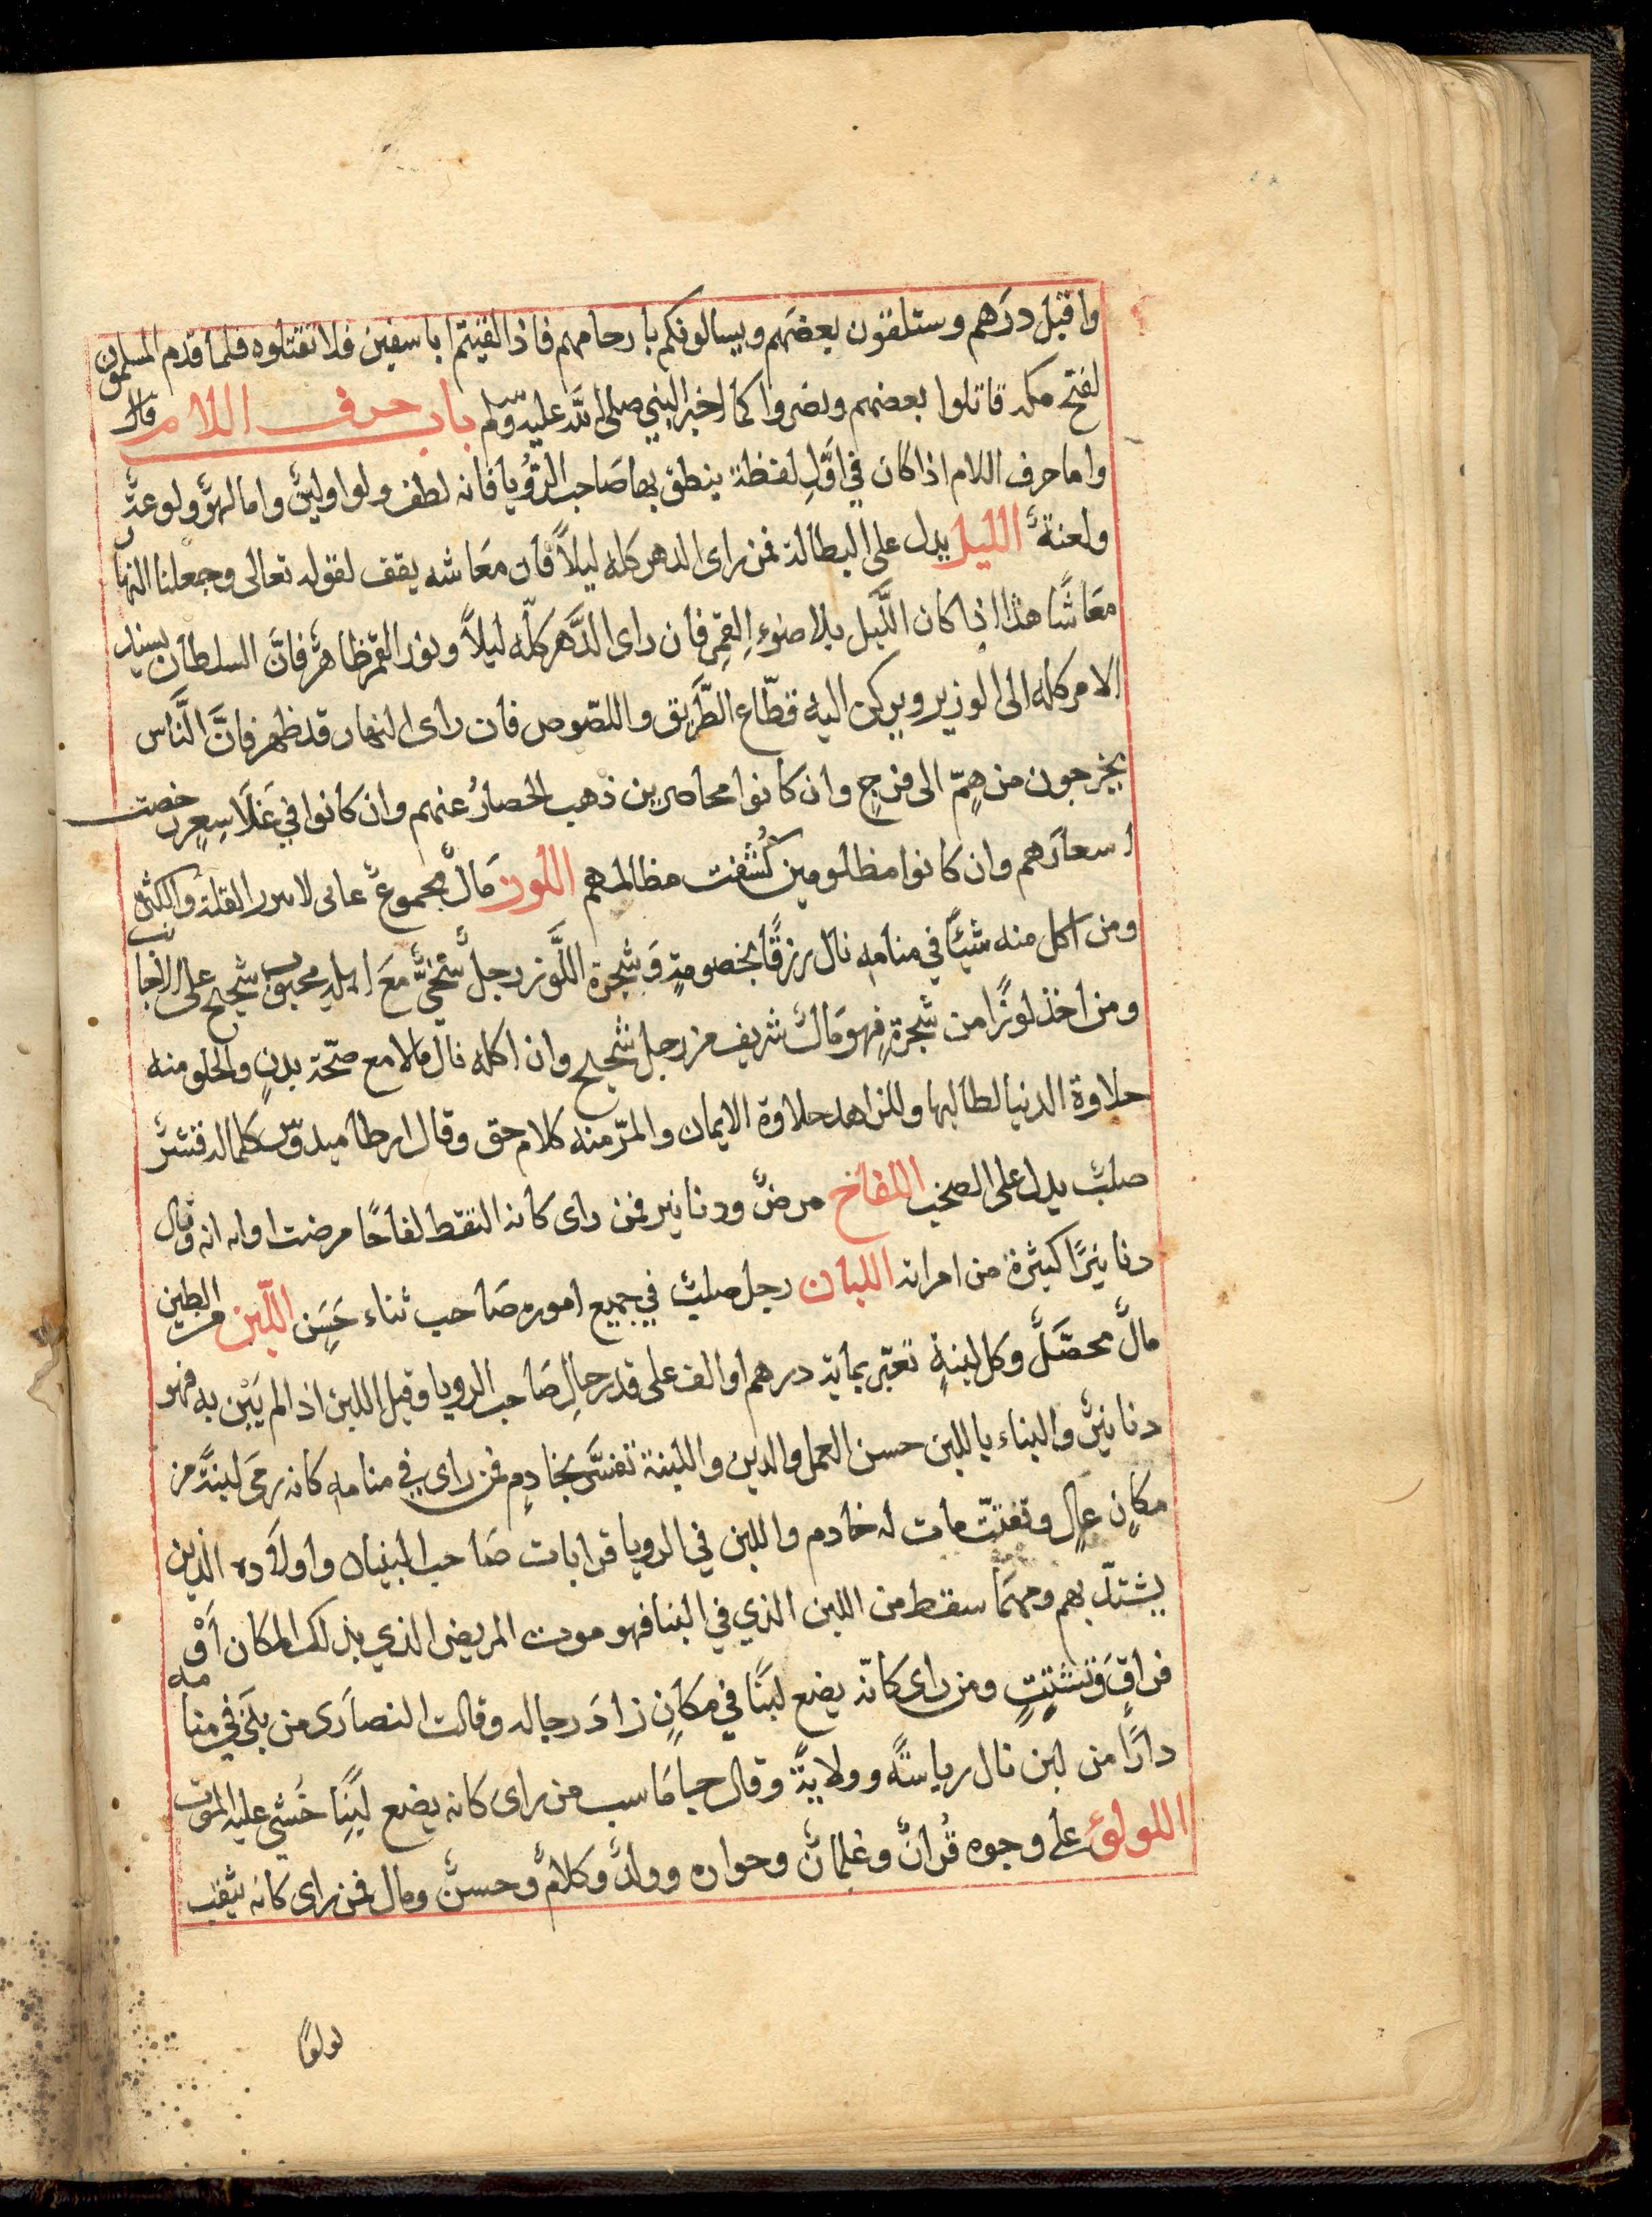 واقبل درهم وستلقون بعضهم ويسالونكم بارحامهم فاذا لقيتم اباسفين فلا تقتلوه فلما قدم المسلمون
لفتح مكه قاتلوا بعضهم ونصروا كما اخبر النبي صلى الله عليه وسلم باب حرف اللام قال
واما حرف اللام اذا كان في اوّل لفظة ينطق بها صاحب الرؤيا فانه لطف ولوا ولينٌ واما لهوٌ ولوعةٌ
ولعنةٌ الليل يدل على البطالة فمن راى الدهر كله ليلاً فان معاشه يقف لقوله تعالى وجعلنا النهار
معاشًا هذا اذا كان اللّيل بلا ضوءِ القمرِ فان راى الدَّهر كلّه ليلاً ونور القمر ظاهرٌ فانَّ السلطان يسند
الامر كله الى الوزير ويركن اليه قطّاع الطَّريق واللصوص فان راى النهار قد ظهر فانَّ النّاس
يخرجون من همٍّ الى فرجٍ وان كانوا محاصرين ذهب الحصارُ عنهم وان كانوا في غَلاَ سِعرٍ رخصت
اسعارهم وان كانوا مظلومين كُشفت مظالمهم اللوز مالٌ مجموعٌ على القلة والكثرة
ومن اكل منه شيئًا في منامه نال رزقًا بخصومةٍ وشجرة اللَّوز رجلٌ سخيٌّ معَ اهله محبوب شحيح على الاجانب
ومن اخذ لوزًا من شجرةٍ فهو مالٌ شريف من رجل شحيح وان اكله نال مالا مع صحّة بدنٍ والحلو منه
حلاوة الدنيا لطالبها وللزاهد حلاوة الايمان والمرّ منه كلام حق وقال ارطاميدوس كلما له قشرٌ
صلبٌ يدل على الصخب اللفاح مرضٌ ودنانير فمن راى كانه التقط لفاحًا مرضت امراته وقال
دنانيرًا كثيرة من امراته اللبان رجل صلبٌ في جميع اموره صاحب ثناء حَسَن اللّبن من الطين
مالٌ محصّلٌ وكل لبنةٍ تعبّر بماية درهم او الف على قدر حالِ صاحب الرويا وقيل اللبن اذا لم يَبْنِ به فهو
دنانيرٌ والبناء باللبن حسن العمل والدين واللبنة تفسَّر بخادمٍ فمن راى في منامه كانه رمى لبنةً من
مكانٍ عالٍ وتفتّت مات له خادم واللبن في الرويا قرابات صاحب البنيان واولاده الذين
يشتدّ بهم ومهما سقط من اللبن الذي في البنا فهو موت المريض الذي بذلك المكان اوْ
فراقٍ وتشتيتٍ ومن راى كانّه يضع لبنًا في مكانٍ زادَ رجاله وقالت النصارى من بنى في منامه
دارًا من لبن نال رياسةً وولايةً وقال جاماسب من راى كانه يضع لبنًا خُشى عليه الموت
اللولؤ على وجوه قُرانٌ وغلمانٌ وجواره وولدٌ وكلامٌ وحسنٌ ومال فمن راى كانه يثقب
لولوًا